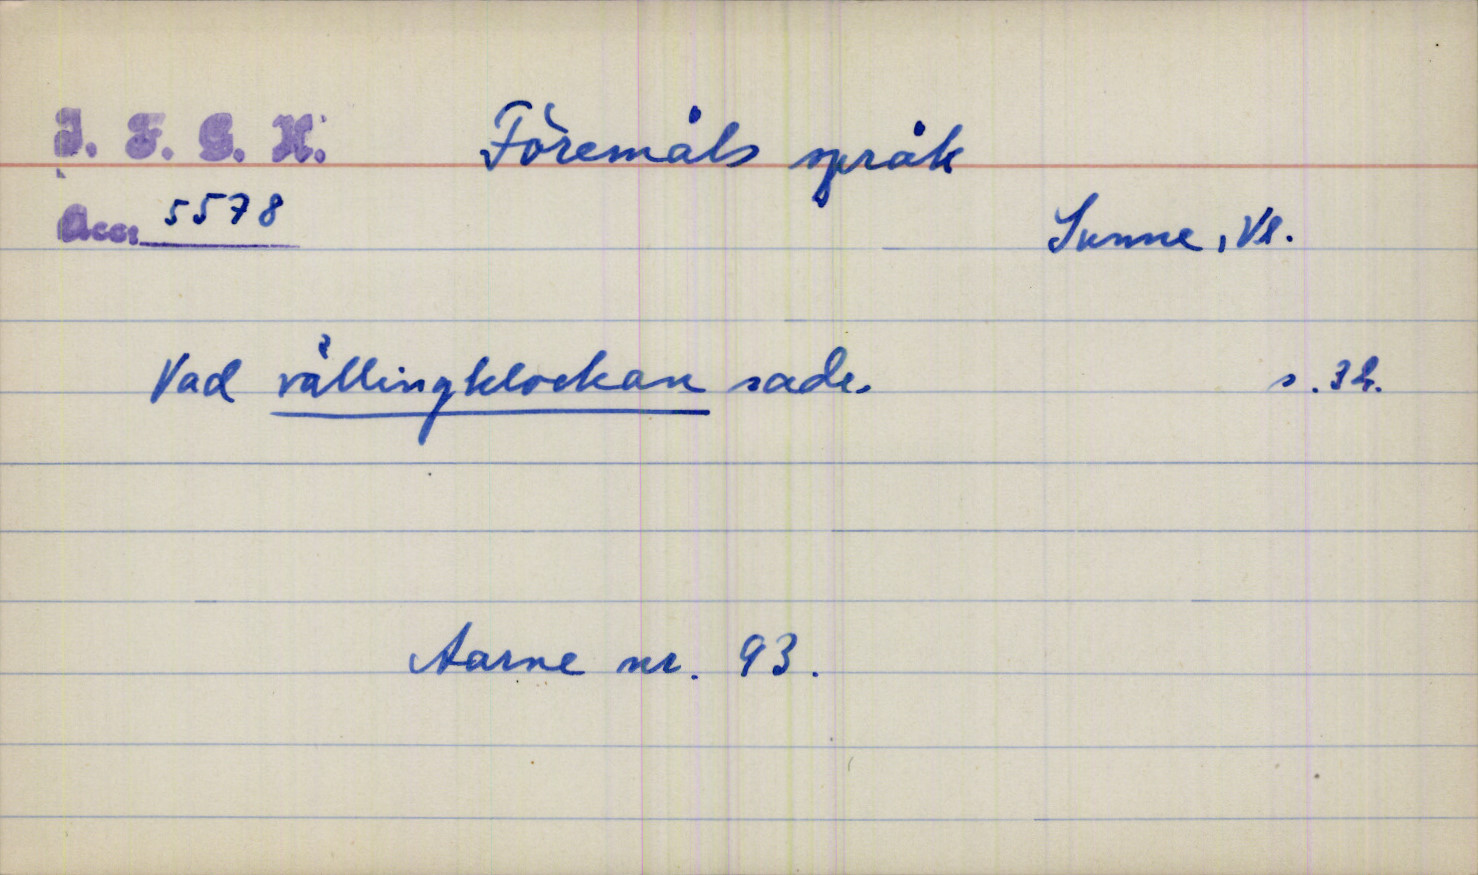 I. F. G. H. Föremåls språk
Acc. 5578
Sunne, Vl.
Vad vällingklockan sade.
Aarne nr. 93.